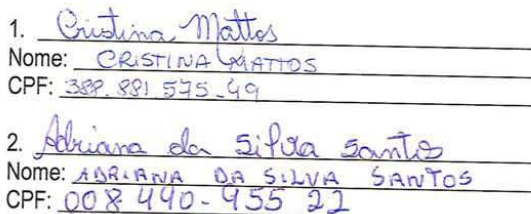 1. Cristina Mattos
Nome: CRISTINA MATTOS
CPF: 388.881 575-49
2. Adriana da Silva Santos
Nome: ADRIANA DA SILVA SANTOS
CPF: 008 490-455 22